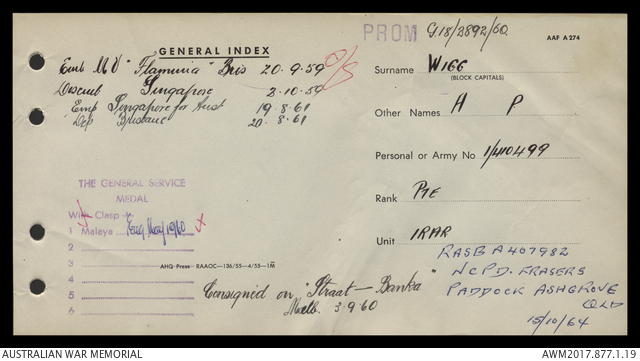 PROM G18/2892/60
GENERAL INDEX
AAF A 274
Emb MV "Flaminia" Bris 20.9.59 O/S
Disemb Singapore 2.10.59
Emp Singapore for Aust 19.8.61
Dep Brisbane 20.8.61
Surname WIGG
(BLOCK CAPITALS)
Other Names A P
Personal or Army No 1/410499
Rank PTE
Unit 1RAR
RASBA 407982
NCPD. FRASERS
PADDOCK ASHGROVE
QLD
15/10/64
THE GENERAL SERVICE
MEDAL
With Clasp
1 Malaya Eng May 1960 X
2
3
4
5
6
AHQ Press RAAOC—136/55—4/55—1M
Consigned on "Straat - Banka"
Melb. 3-9.60
AUSTRALIAN WAR MEMORIAL
AWM2017.877.1.19